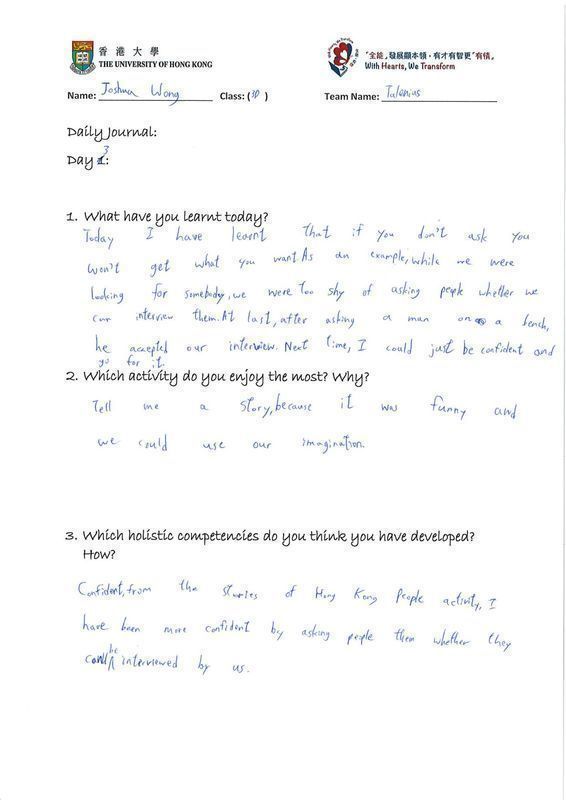 香港大學
THE UNIVERSITY OF HONG KONG
「全能」發展顯本領·有才有智更「有情」
With Hearts, We Transform
Name: Joshua Wong Class: (3D) Team Name: Talenius
Daily Journal:
Day 3:
1. What have you learnt today?
Today I have learnt that if you don't ask you
won't get what you want. As an example, while we were
looking for somebody, we were too shy of asking people whether we
can interview them. At last, after asking a man on a bench,
he accepted our interview. Next time, I could just be confident and
go for it.
2. Which activity do you enjoy the most? Why?
Tell me a story, because it was funny and
we could use our imagination.
3. Which holistic competencies do you think you have developed?
How?
Confident, from the stories of Hong Kong People activity, I
have been more confident by asking people them whether they
can be interviewed by us.